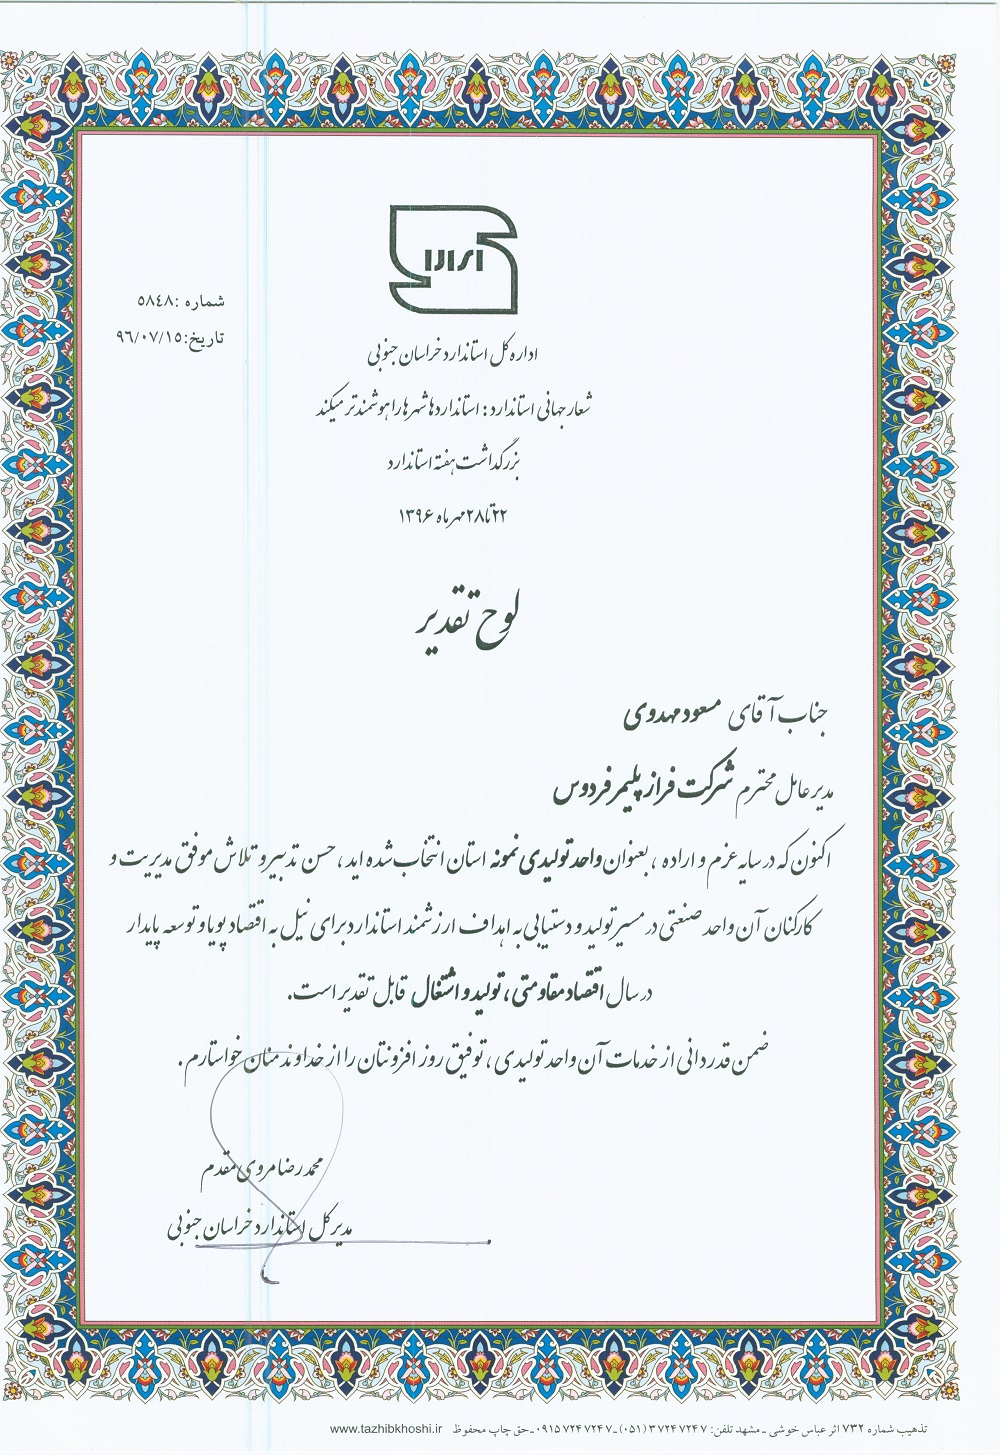 شماره :٥٨٤٨
تاریخ:٩٦/٠٧/١٥
اداره کل استاندارد خراسان جنوبی
شعار جهانی استاندارد : استانداردها شهرها را هوشمندتر میکند
بزرگداشت هفته استاندارد
۲۲ تا ۲۸ مهر ماه ۱۳۹۶
لوح تقدیر
جناب آقای مسعود مهدوی
مدیر عامل محترم شرکت فراز پلیمر فردوس
اکنون که در سایه عزم و اراده ، بعنوان واحد تولیدی نمونه استان انتخاب شده اید ، حسن تدبیر و تلاش موفق مدیریت و
کارکنان آن واحد صنعتی در مسیر تولید و دستیابی به اهداف ارزشمند استاندارد برای نیل به اقتصاد پویا و توسعه پایدار
در سال اقتصاد مقاومتی ، تولید و اشتغال قابل تقدیر است.
ضمن قدردانی از خدمات آن واحد تولیدی ، توفیق روز افزونتان را از خداوند منان خواستارم .
محمد رضا مروی مقدم
مدیر کل استاندارد خراسان جنوبی
تذهیب شماره ۷۳۲ اثر عباس خوشی ـ مشهد تلفن: ۳۷۲۴۷۲۴۷ (۰۵۱) ـ ۰۹۱۵۷۲۴۷۲۴۷ ـ حق چاپ محفوظ www.tazhibkhoshi.ir